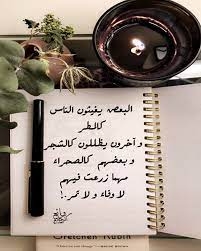 البعض يغيثون الناس
كالمطر
و آخرون يظللون كالشجر
و بعضهم كالصحراء
مهما زرعت فيهم
لا وفاء و لا ثمر.!
Gretchen Rubin